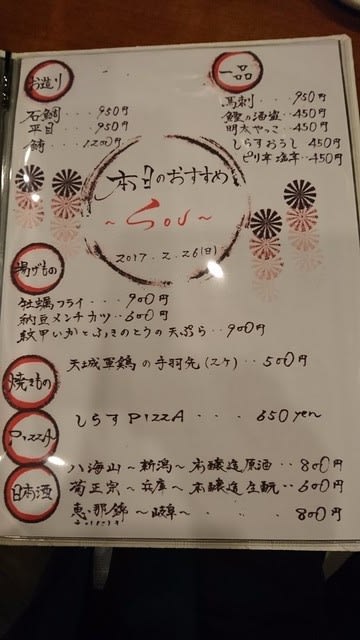 お造り
石鯛・・・950円
平目・・・950円
鰆・・・1200円
一品
馬刺・・・950円
鰹の酒盗・・450円
明太やっこ・・450円
しらすおろし 450円
ピリ辛塩辛・・450円
本日のおすすめ
～Sou～
2017.2.26(日)
揚げもの
牡蠣フライ・・・900円
納豆メンチカツ・・600円
紋甲いかとふきのとうの天ぷら・・900円
焼きもの
天城軍鶏の手羽先(2ケ)・・500円
PizzA
しらすPizzA・・・650yen
日本酒
八海山～新潟～本醸造原酒・・800円
菊正宗～兵庫～本醸造生酛・・600円
恵那錦～岐阜～・・800円